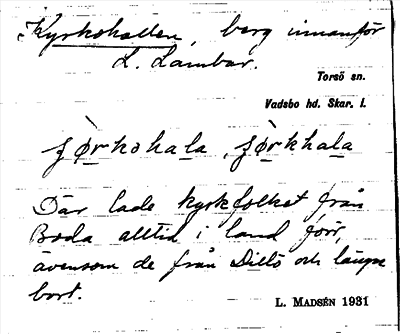 Kyrkohallen, berg innanför
L. Lambar.
Torsö sn.
Vadsbo hd. Skar. l.
ʃørkohala, ʃørkhala
Där lade kyrkfolket från
Boda alltid i land förr,
ävensom de från Dillö och längre
bort.
L. MADSÉN 1931